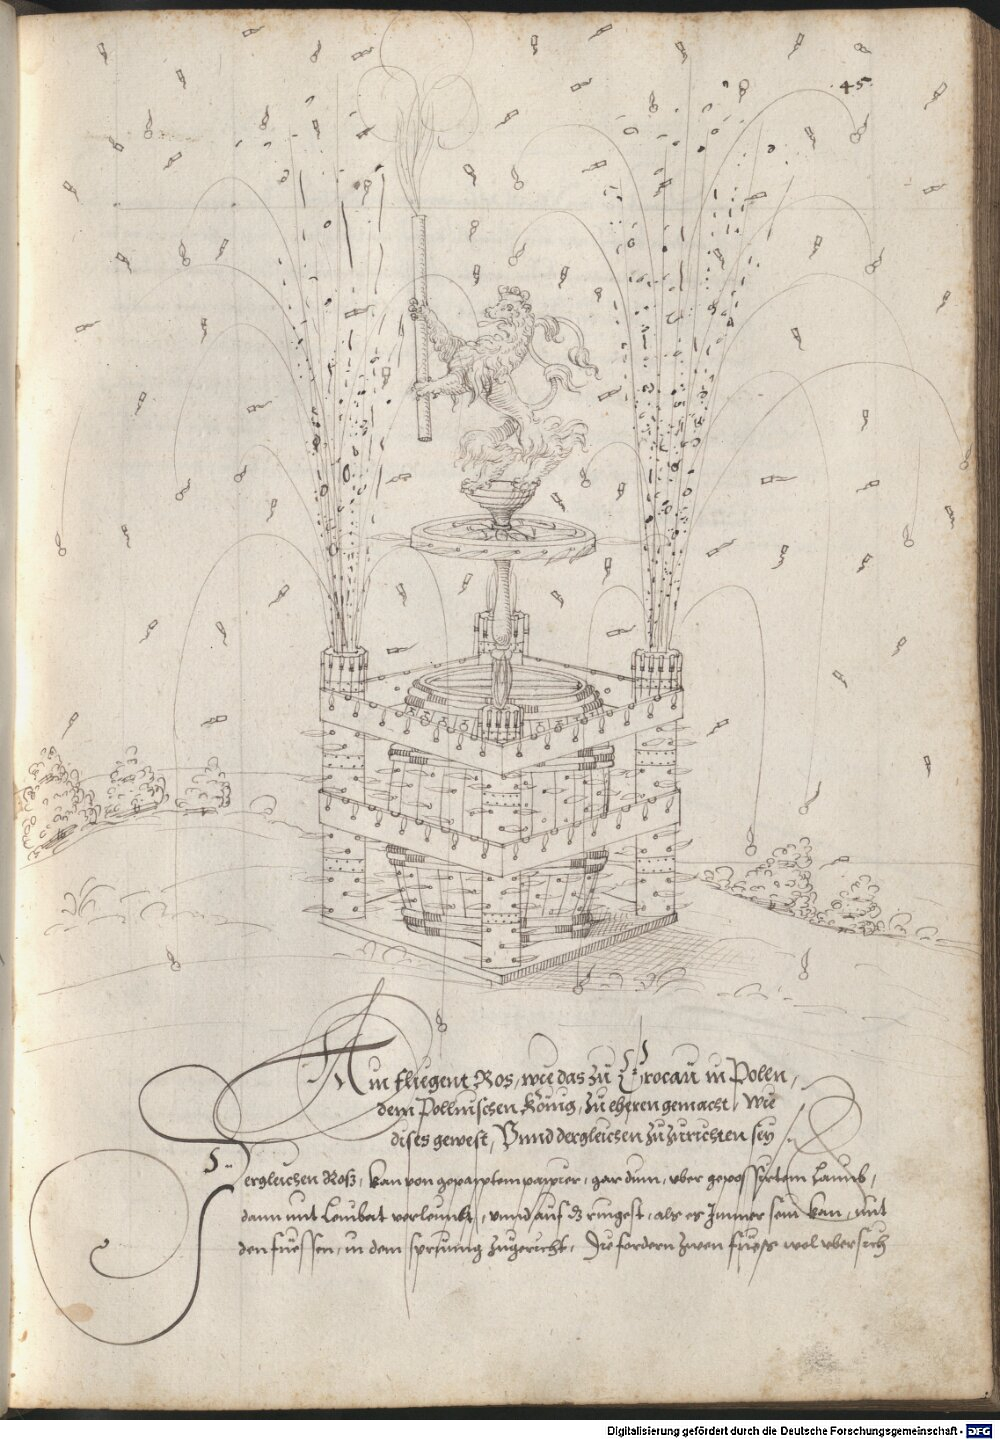 ·45·
Ain fliegent Ros, wie das zů Crocaů in Polen,
dem Polnischen König, zů eheren gemacht, Wie
dises gewest, Vnnd dergleichen zů zůrichten sey
Dergleichen Roß, kan von gepapptem papier, gar dun, vber gepossiertem Laimb,
dann mit Leinbat verleimbt, vnnd auf dz ringest, als es Immer sein kan, mit
den füessen, in dem sprung zůgericht, Die fordern zwen füess wol vbersich
Digitalisierung gefördert durch die Deutsche Forschungsgemeinschaft - DFG